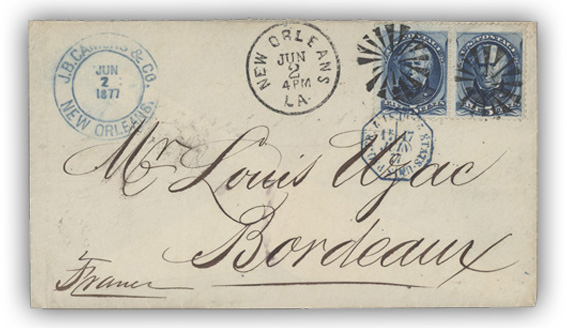 J.B. CAMORS & CO.
JUN
2
1877
NEW ORLEANS.
NEW ORLEANS
JUN
2
4PM
LA.
U.S. POSTAGE
ETATS-UNIS
Mr Louis Uzac
Bordeaux
France